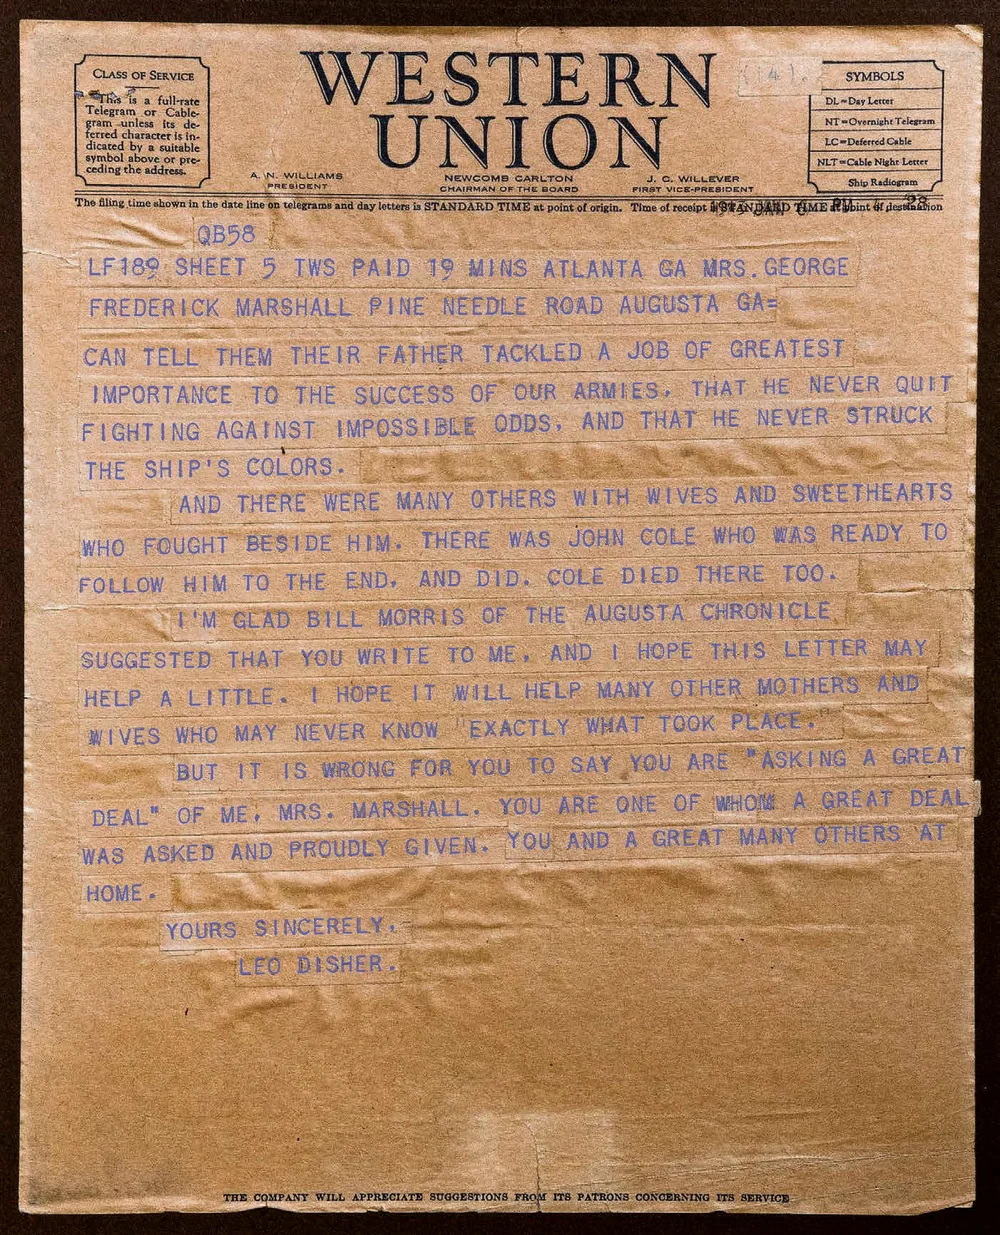 CLASS OF SERVICE
This is a full-rate
Telegram or Cable-
gram unless its de-
ferred character is in-
dicated by a suitable
symbol above or pre-
ceding the address.
WESTERN
UNION
(14).
A. N. WILLIAMS
PRESIDENT
NEWCOMB CARLTON
CHAIRMAN OF THE BOARD
J. C. WILLEVER
FIRST VICE-PRESIDENT
SYMBOLS
DL=Day Letter
NT=Overnight Telegram
LC=Deferred Cable
NLT=Cable Night Letter
Ship Radiogram
The filing time shown in the date line on telegrams and day letters is STANDARD TIME at point of origin. Time of receipt is STANDARD TIME at point of destination
QB58
LF189 SHEET 5 TWS PAID 19 MINS ATLANTA GA MRS.GEORGE
FREDERICK MARSHALL PINE NEEDLE ROAD AUGUSTA GA=
CAN TELL THEM THEIR FATHER TACKLED A JOB OF GREATEST
IMPORTANCE TO THE SUCCESS OF OUR ARMIES, THAT HE NEVER QUIT
FIGHTING AGAINST IMPOSSIBLE ODDS, AND THAT HE NEVER STRUCK
THE SHIP'S COLORS.
AND THERE WERE MANY OTHERS WITH WIVES AND SWEETHEARTS
WHO FOUGHT BESIDE HIM. THERE WAS JOHN COLE WHO WAS READY TO
FOLLOW HIM TO THE END, AND DID. COLE DIED THERE TOO.
I'M GLAD BILL MORRIS OF THE AUGUSTA CHRONICLE
SUGGESTED THAT YOU WRITE TO ME, AND I HOPE THIS LETTER MAY
HELP A LITTLE. I HOPE IT WILL HELP MANY OTHER MOTHERS AND
WIVES WHO MAY NEVER KNOW "EXACTLY WHAT TOOK PLACE."
BUT IT IS WRONG FOR YOU TO SAY YOU ARE "ASKING A GREAT
DEAL" OF ME, MRS. MARSHALL. YOU ARE ONE OF WHOM A GREAT DEAL
WAS ASKED AND PROUDLY GIVEN. YOU AND A GREAT MANY OTHERS AT
HOME.
YOURS SINCERELY,
LEO DISHER.
THE COMPANY WILL APPRECIATE SUGGESTIONS FROM ITS PATRONS CONCERNING ITS SERVICE